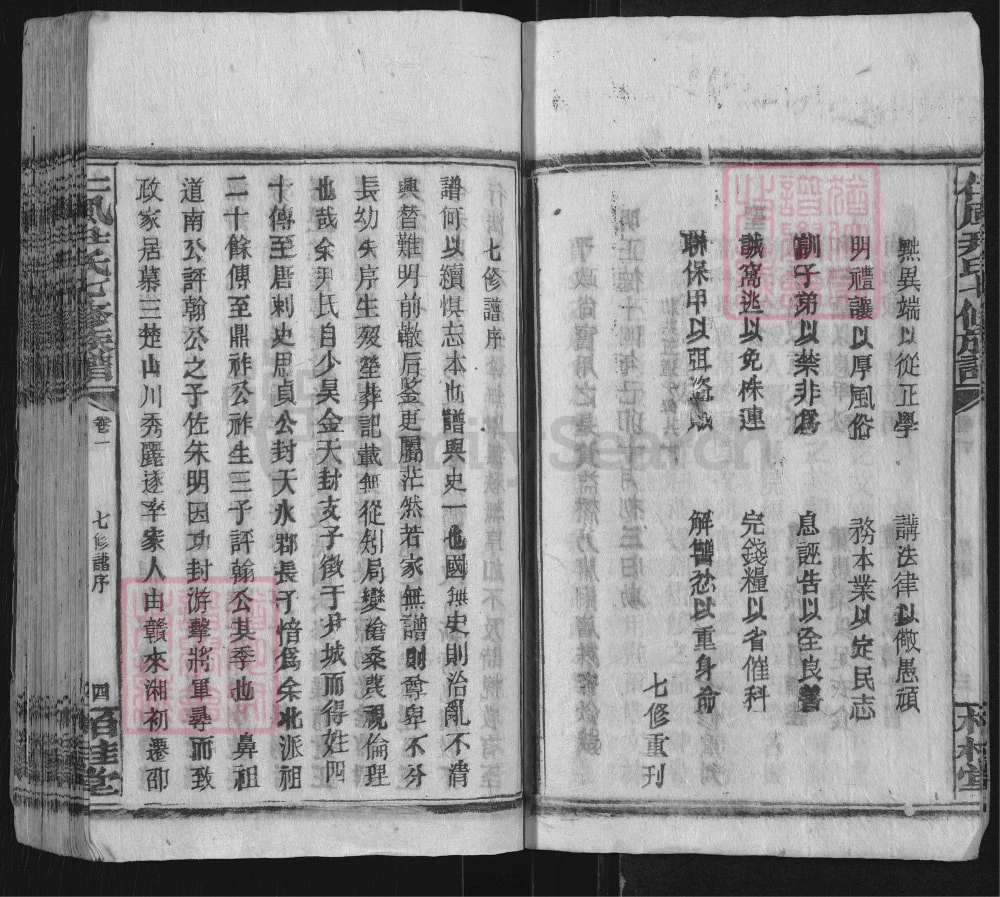 黜異端以從正學　講法律以儆愚頑
明禮讓以厚風俗　務本業以定民志
訓子弟以禁非為　息誣告以全良善
誡窩逃以免株連　完錢糧以省催科
聯保甲以弭盜賊　解讐忿以重身命
七修重刊
七修譜序
譜何以續惧忘本也譜與史一也國無史則治亂不清
興替難明前轍后鉴更屬茫然若家無譜則尊卑不分
長幼失序生歿塋葬記載無從刼局變滄桑蔑視倫理
也哉余尹氏自少昊金天封支子徵于尹城而得姓四
十傳至唐剌史思貞公封天水郡長子愔為余北派祖
二十餘傳至鼎祚公祚生三子評翰公其季也鼻祖
道南公評翰公之子佐朱明因功封游擊將軍尋而致
政家居慕三楚山川秀麗遂率家人由贛來湘初遷邵
尹氏七修族譜
卷一
七修譜序
四
FamilySearch